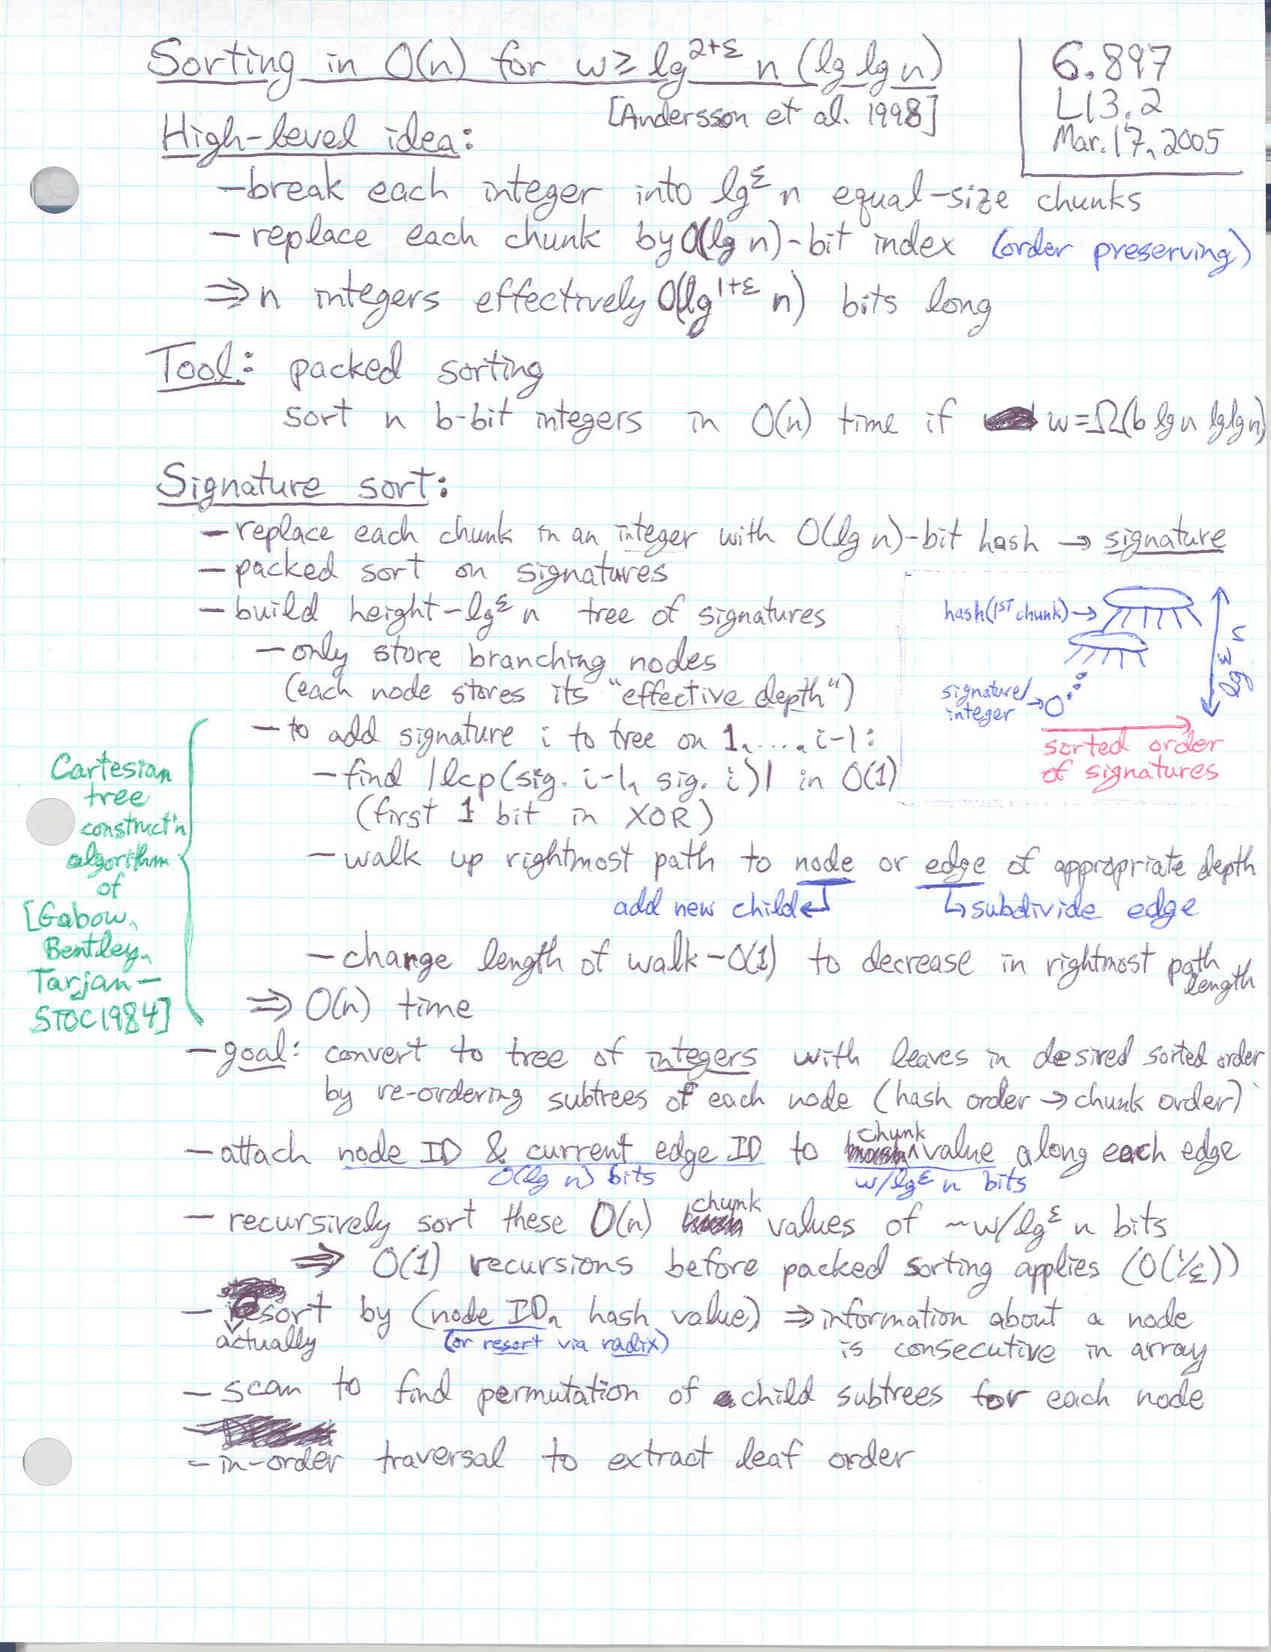 Sorting in O(n) for w ≥ lg^{2+ε} n (lg lg n)
[Andersson et al. 1998]
6.897
L13.2
Mar. 17, 2005
High-level idea:
- break each integer into lg^ε n equal-size chunks
- replace each chunk by O(lg n)-bit index (order preserving)
⇒ n integers effectively O(lg^{1+ε} n) bits long
Tool: packed sorting
sort n b-bit integers in O(n) time if w = Ω(b lg n lg lg n)
Signature sort:
- replace each chunk in an integer with O(lg n)-bit hash → signature
- packed sort on signatures
- build height-lg^ε n tree of signatures
- only store branching nodes
(each node stores its "effective depth")
hash(1ST chunk) →
lg^ε n
signature/
integer →
sorted order
of signatures
- to add signature i to tree on 1, ..., i-1:
- find |lcp(sig. i-1, sig. i)| in O(1)
(first 1 bit in XOR)
- walk up rightmost path to node or edge of appropriate depth
add new child ↲ ↳ subdivide edge
- change length of walk - O(1) to decrease in rightmost path
length
⇒ O(n) time
Cartesian
tree
construct'n
algorithm
of
[Gabow,
Bentley,
Tarjan -
STOC1984]
- goal: convert to tree of integers with leaves in desired sorted order
by re-ordering subtrees of each node (hash order → chunk order)
- attach node ID & current edge ID to chunk value along each edge
O(lg n) bits w/lg^ε n bits
- recursively sort these O(n) chunk values of ~w/lg^ε n bits
⇒ O(1) recursions before packed sorting applies (O(1/ε))
- sort by (node ID, hash value) ⇒ information about a node
actually (or resort via radix) is consecutive in array
- scan to find permutation of child subtrees for each node
- in-order traversal to extract leaf order